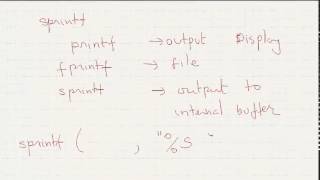 sprintf
printf → output Display
fprintf → file
sprintf → output to
internal buffer
sprintf ( , "%s "